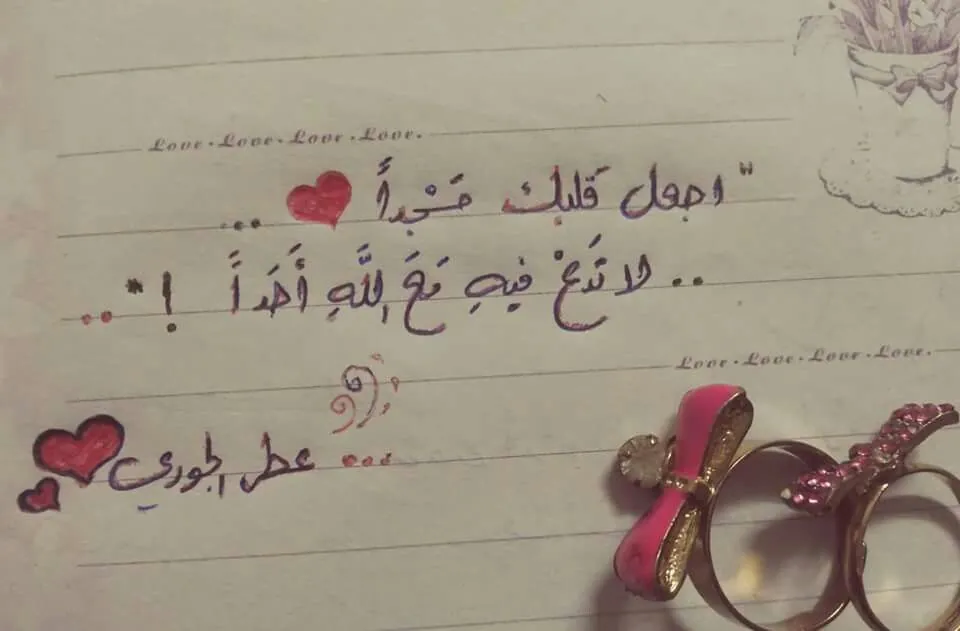 Love. Love. Love. Love.
" اجعل قلبك مَسْجداً ...
.. لا تَدَعْ فيهِ مَعَ اللَّهِ أَحَداً ! " ..
Love. Love. Love. Love.
... عطر الجوري